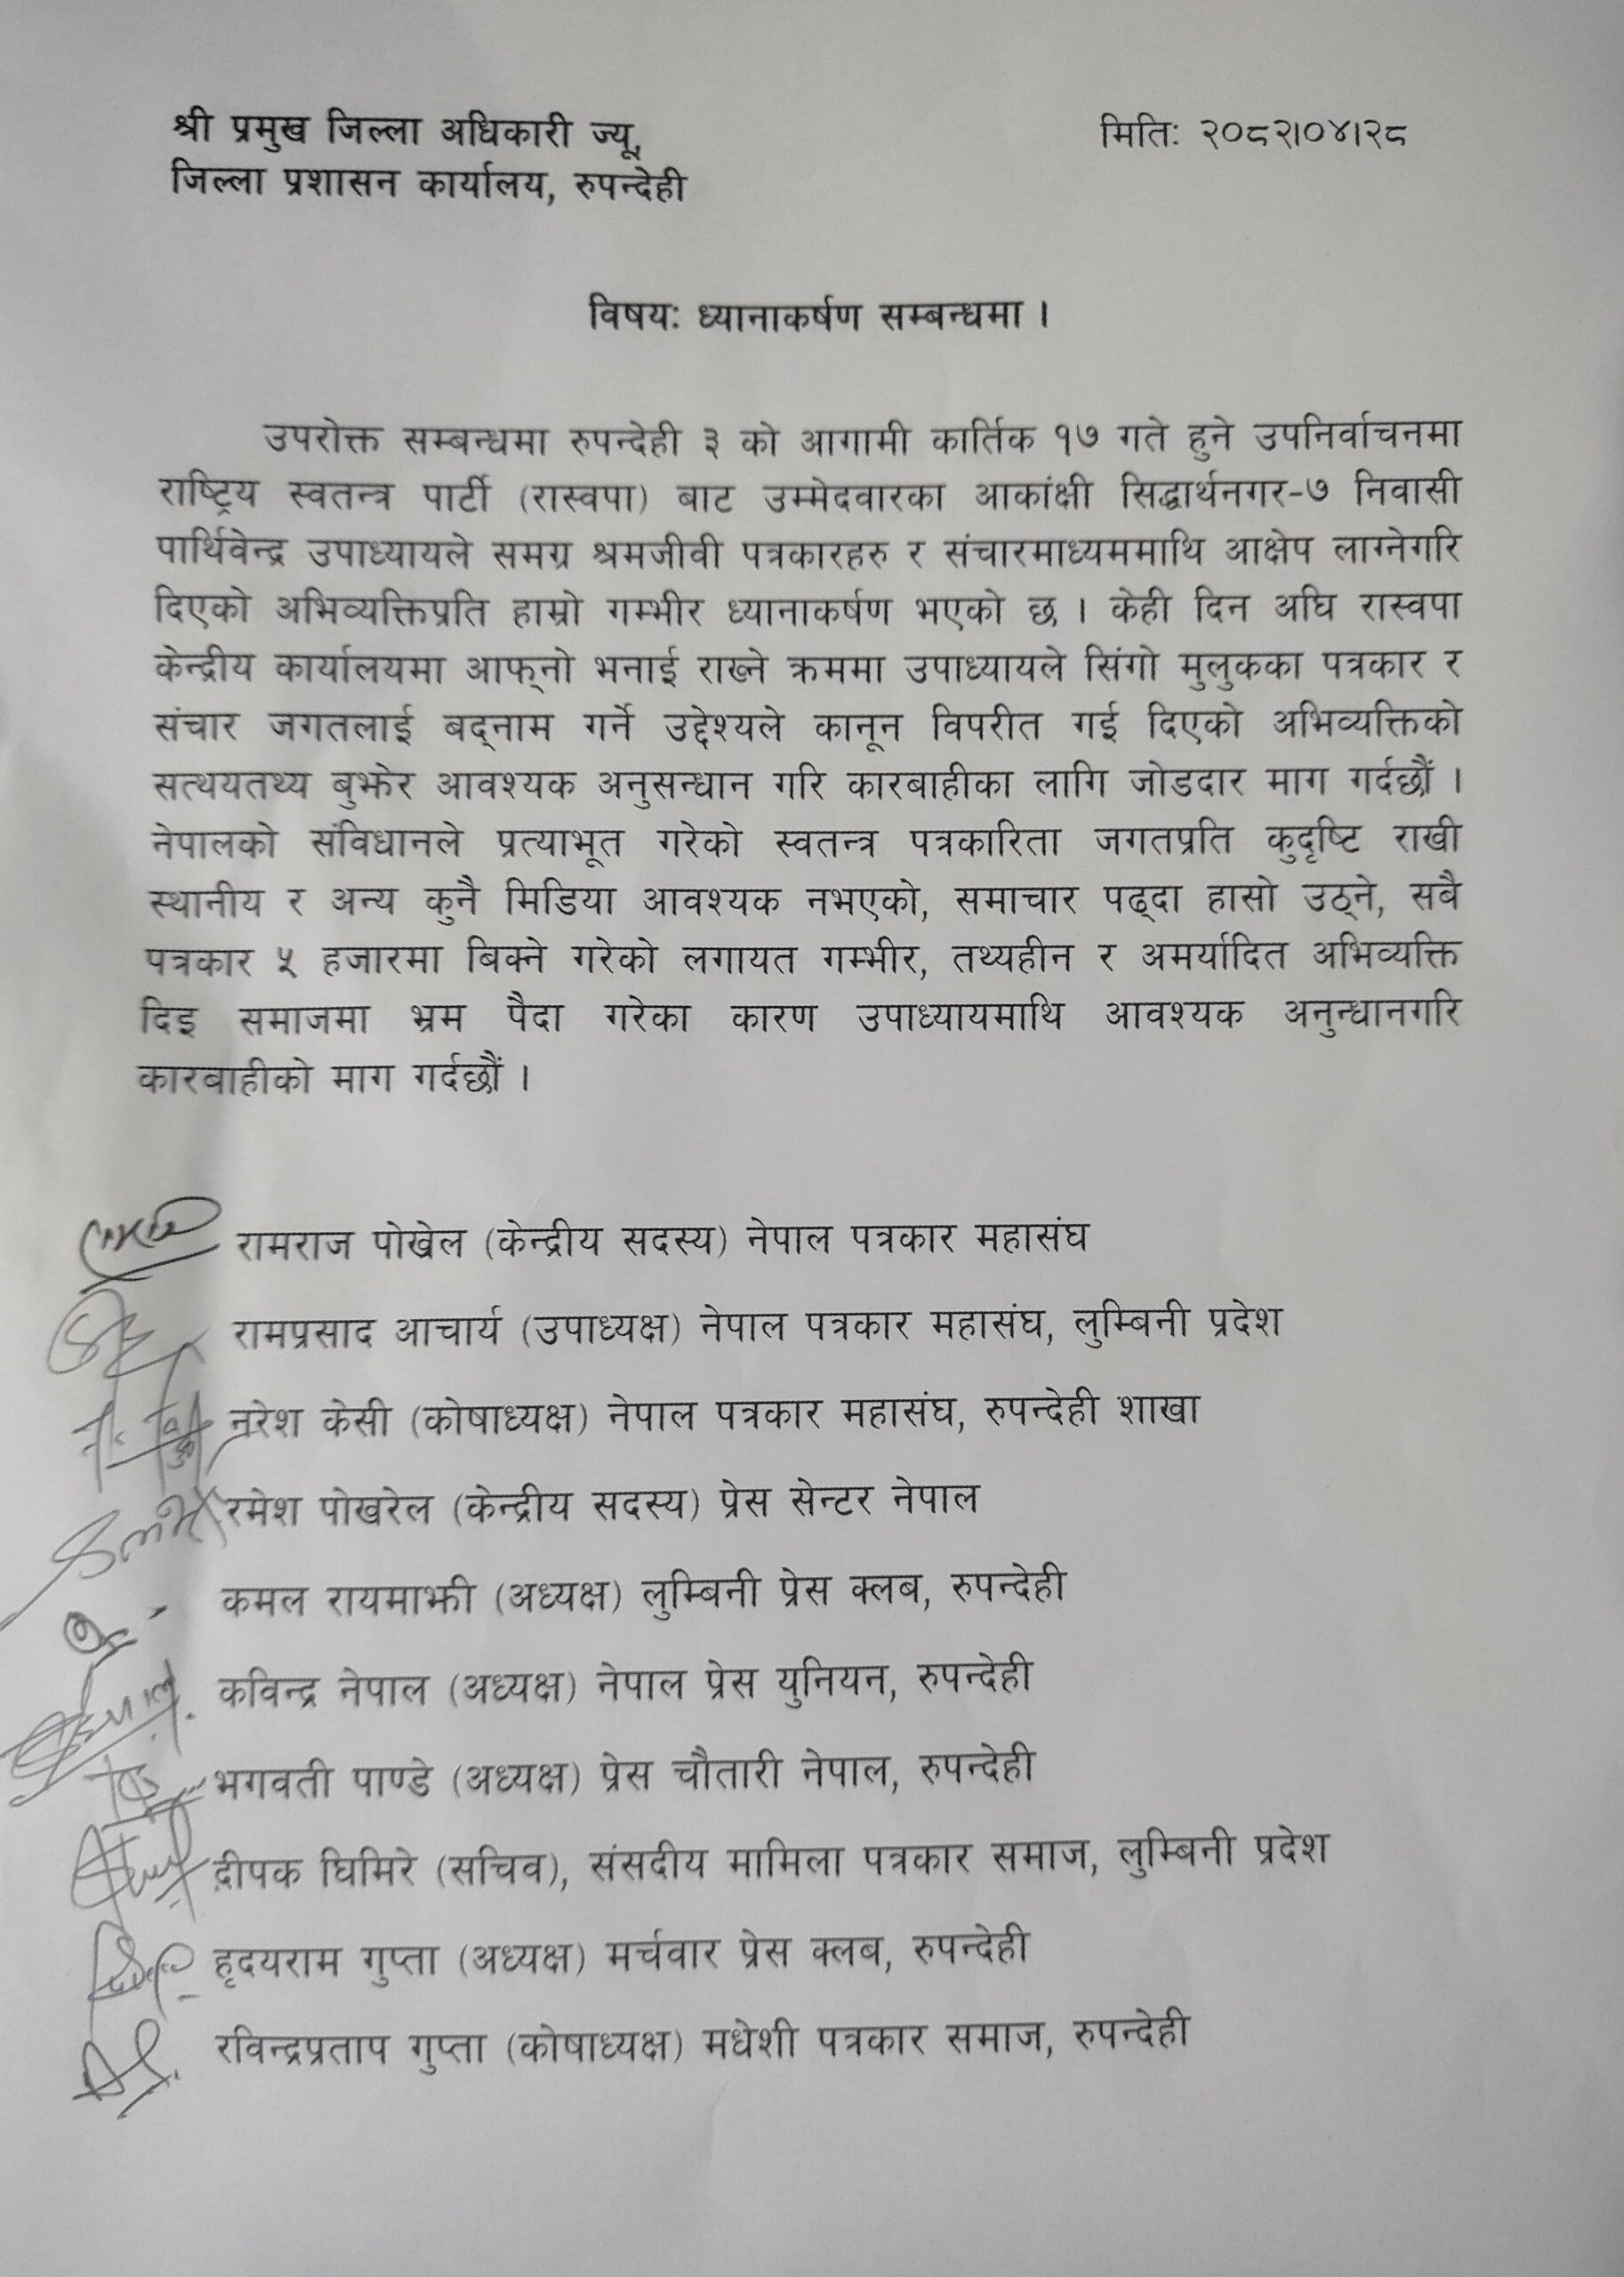 श्री प्रमुख जिल्ला अधिकारी ज्यू,
मितिः २०८२।०४।२८
जिल्ला प्रशासन कार्यालय, रुपन्देही
विषयः ध्यानाकर्षण सम्बन्धमा ।
उपरोक्त सम्बन्धमा रुपन्देही ३ को आगामी कार्तिक १७ गते हुने उपनिर्वाचनमा
राष्ट्रिय स्वतन्त्र पार्टी (रास्वपा) बाट उम्मेदवारका आकांक्षी सिद्धार्थनगर-७ निवासी
पार्थिवेन्द्र उपाध्यायले समग्र श्रमजीवी पत्रकारहरु र संचारमाध्यममाथि आक्षेप लाग्नेगरि
दिएको अभिव्यक्तिप्रति हाम्रो गम्भीर ध्यानाकर्षण भएको छ । केही दिन अघि रास्वपा
केन्द्रीय कार्यालयमा आफ्‌नो भनाई राख्ने क्रममा उपाध्यायले सिंगो मुलुकका पत्रकार र
संचार जगतलाई बद्‌नाम गर्ने उद्देश्यले कानून विपरीत गई दिएको अभिव्यक्तिको
सत्थयतथ्य बुझेर आवश्यक अनुसन्धान गरि कारबाहीका लागि जोडदार माग गर्दछौं ।
नेपालको संविधानले प्रत्याभूत गरेको स्वतन्त्र पत्रकारिता जगतप्रति कुदृष्टि राखी
स्थानीय र अन्य कुनै मिडिया आवश्यक नभएको, समाचार पढ्दा हासो उठ्ने, सबै
पत्रकार ५ हजारमा बिक्ने गरेको लगायत गम्भीर, तथ्यहीन र अमर्यादित अभिव्यक्ति
दिइ समाजमा भ्रम पैदा गरेका कारण उपाध्यायमाथि आवश्यक अनुन्धानगरि
कारबाहीको माग गर्दछौं ।
रामराज पोख्रेल (केन्द्रीय सदस्य) नेपाल पत्रकार महासंघ
रामप्रसाद आचार्य (उपाध्यक्ष) नेपाल पत्रकार महासंघ, लुम्बिनी प्रदेश
नरेश केसी (कोषाध्यक्ष) नेपाल पत्रकार महासंघ, रुपन्देही शाखा
रमेश पोखरेल (केन्द्रीय सदस्य) प्रेस सेन्टर नेपाल
कमल रायमाझी (अध्यक्ष) लुम्बिनी प्रेस क्लब, रुपन्देही
कविन्द्र नेपाल (अध्यक्ष) नेपाल प्रेस युनियन, रुपन्देही
भगवती पाण्डे (अध्यक्ष) प्रेस चौतारी नेपाल, रुपन्देही
दीपक घिमिरे (सचिव), संसदीय मामिला पत्रकार समाज, लुम्बिनी प्रदेश
हृदयराम गुप्ता (अध्यक्ष) मर्चवार प्रेस क्लब, रुपन्देही
रविन्द्रप्रताप गुप्ता (कोषाध्यक्ष) मधेशी पत्रकार समाज, रुपन्देही